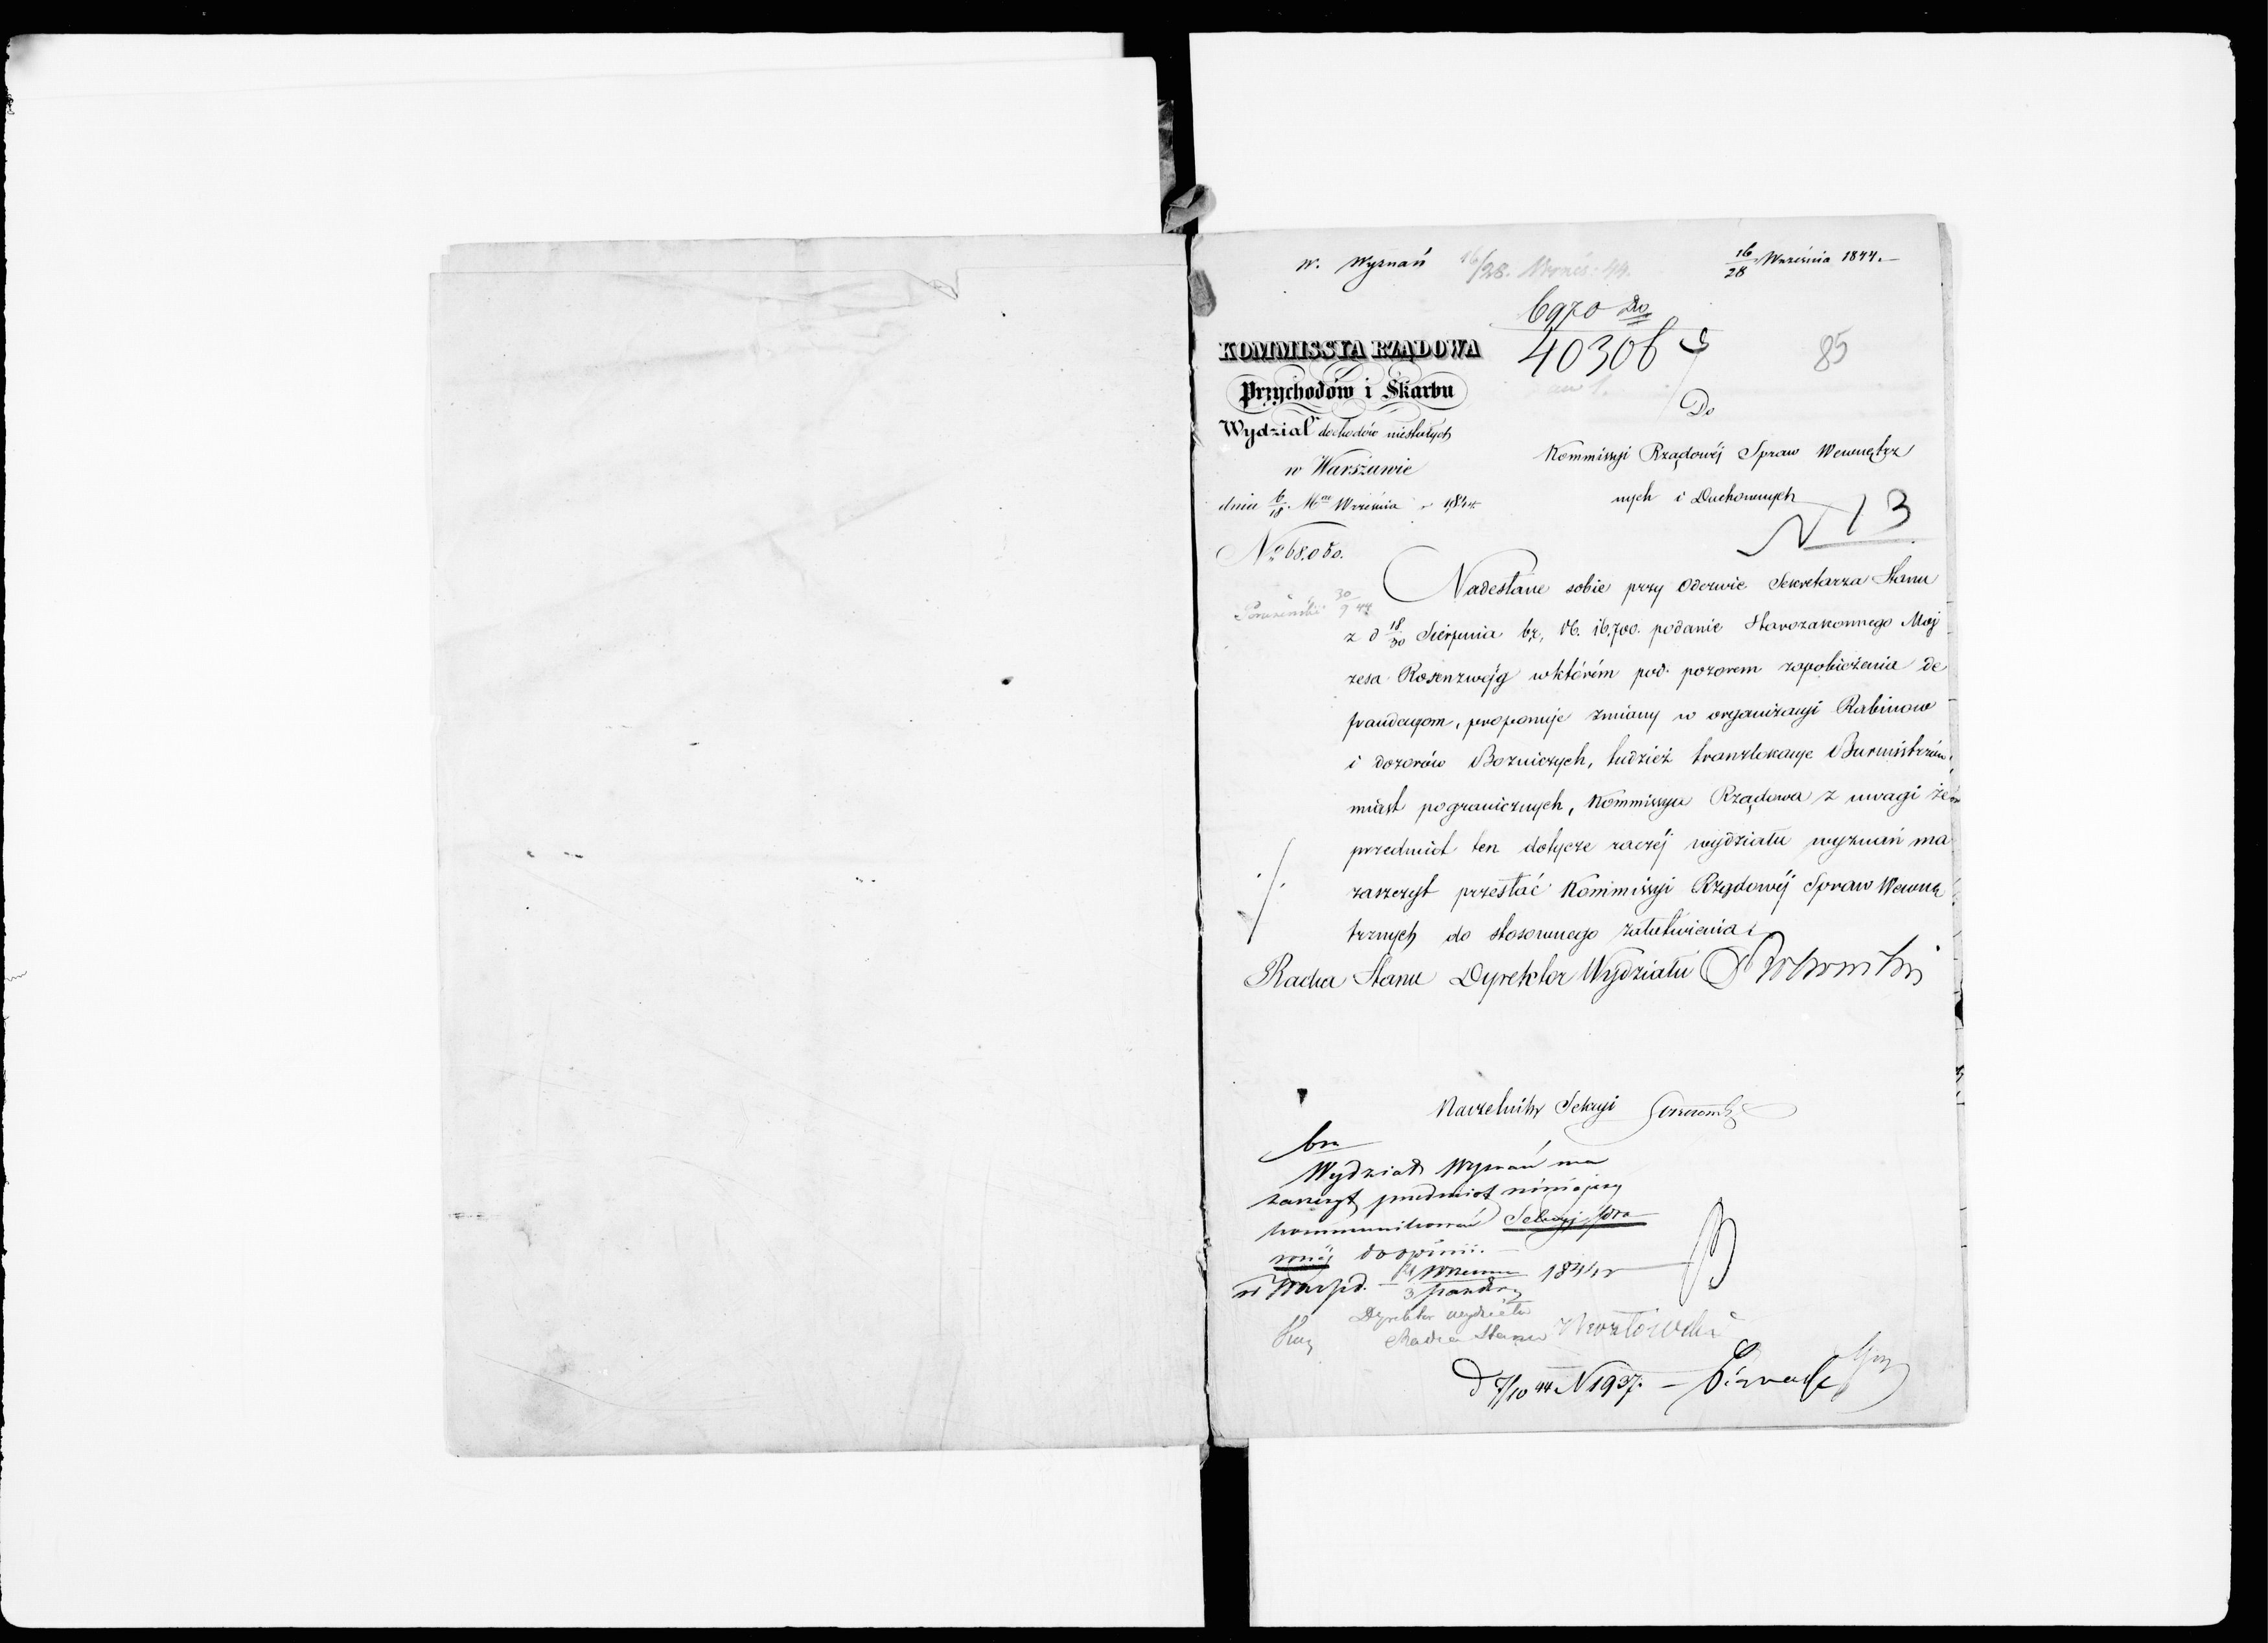 W. Wyznań 16/28. Wrześ: 44.
16/28 Września 1844.—
6970
40306
85
KOMMISSYA RZĄDOWA
Przychodów i Skarbu
Wydział dochodów niestałych
w Warszawie
dnia 6/18. Września 1844.
Do
Kommissyi Rządowéj Spraw Wewnętrz
nych i Duchownych
N 13
No 68.080.
30/9 44
Nadesłane sobie przy Odezwie Sekretarza Stanu
z d 18/30 Sierpnia br. 16,700. podanie Starozakonnego Moj
zesa Rosenzwejg w którém pod pozorem zapobieżenia de
fraudacyom, proponuje zmiany w organizacyi Rabinow
i dozorów Bozniczych, tudzież translokacye Burmistrzów
miast pogranicznych, Kommissya Rządowa z uwagi że
przedmiot ten dotycze raczéj wydziału wyznań ma
zaszczyt przesłać Kommissyi Rządowéj Spraw Wewnę
trznych do stosownego załatwienia.
Radca Stanu Dyrektor Wydziału
Naczelnik Sekcyi
Wydział Wyznań ma
zaszczyt przedmiot niniejszy
kommunikować Sekcyi
do opinii.
1844 r
Dyrektor wydziału
Radca Stanu
d 7/10 44 N 1937.